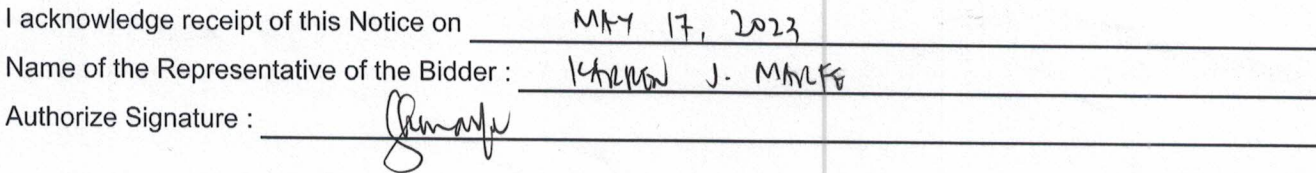 I acknowledge receipt of this Notice on MAY 17, 2023
Name of the Representative of the Bidder : KARREN J. MARFE
Authorize Signature :